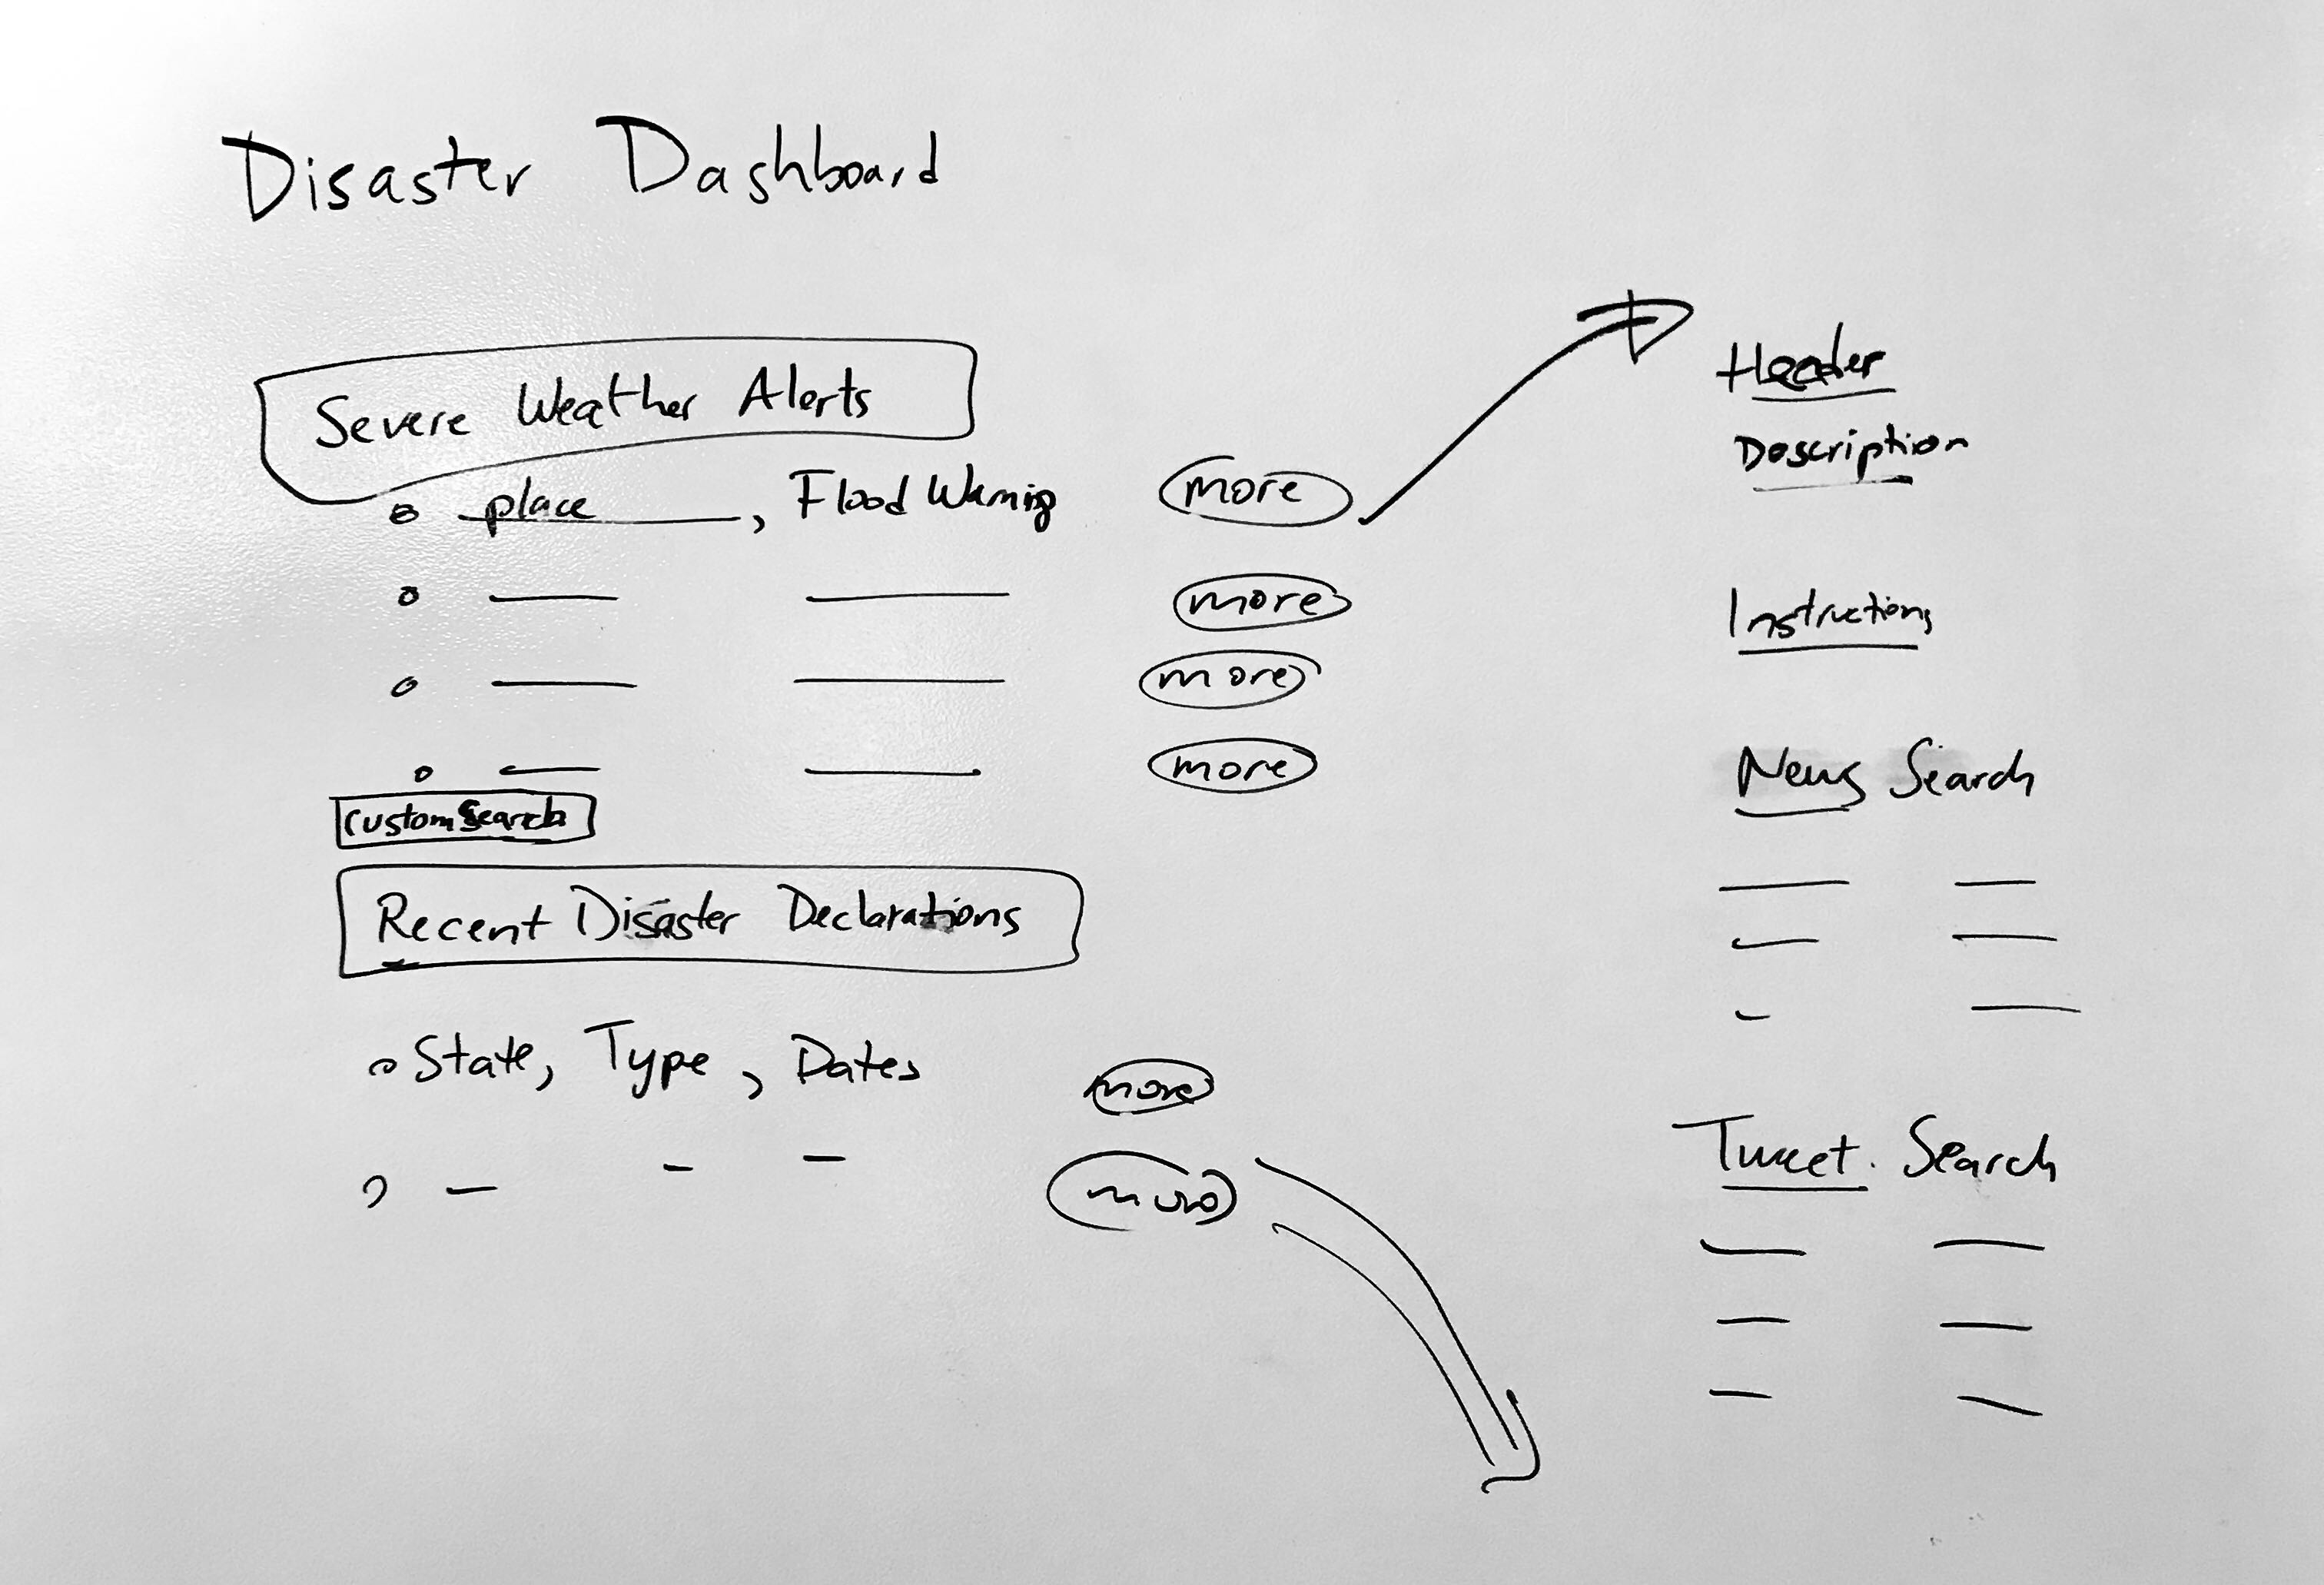 Disaster Dashboard
Severe Weather Alerts
place, Flood Warning more
more
more
more
Custom Search
Recent Disaster Declarations
State, Type, Dates more
more
Header
Description
Instructions
News Search
Tweet Search